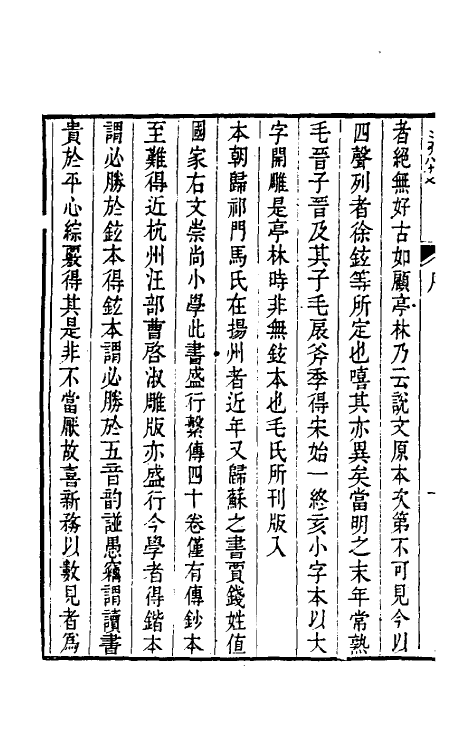 者絕無好古如顧亭林乃云說文原本次第不可見今以
四聲列者徐鉉等所定也嘻其亦異矣當明之末年常熟
毛晉子晉及其子毛扆斧季得宋始一終亥小字本以大
字開雕是亭林時非無鉉本也毛氏所刊版入
本朝歸祁門馬氏在揚州者近年又歸蘇之書賈錢姓值
國家右文崇尚小學此書盛行繫傳四十卷僅有傳鈔本
至難得近杭州汪部曹啓淑雕版亦盛行今學者得鍇本
謂必勝於鉉本得鉉本謂必勝於五音韵諩愚竊謂讀書
貴於平心綜覈得其是非不當厭故喜新務以數見者爲